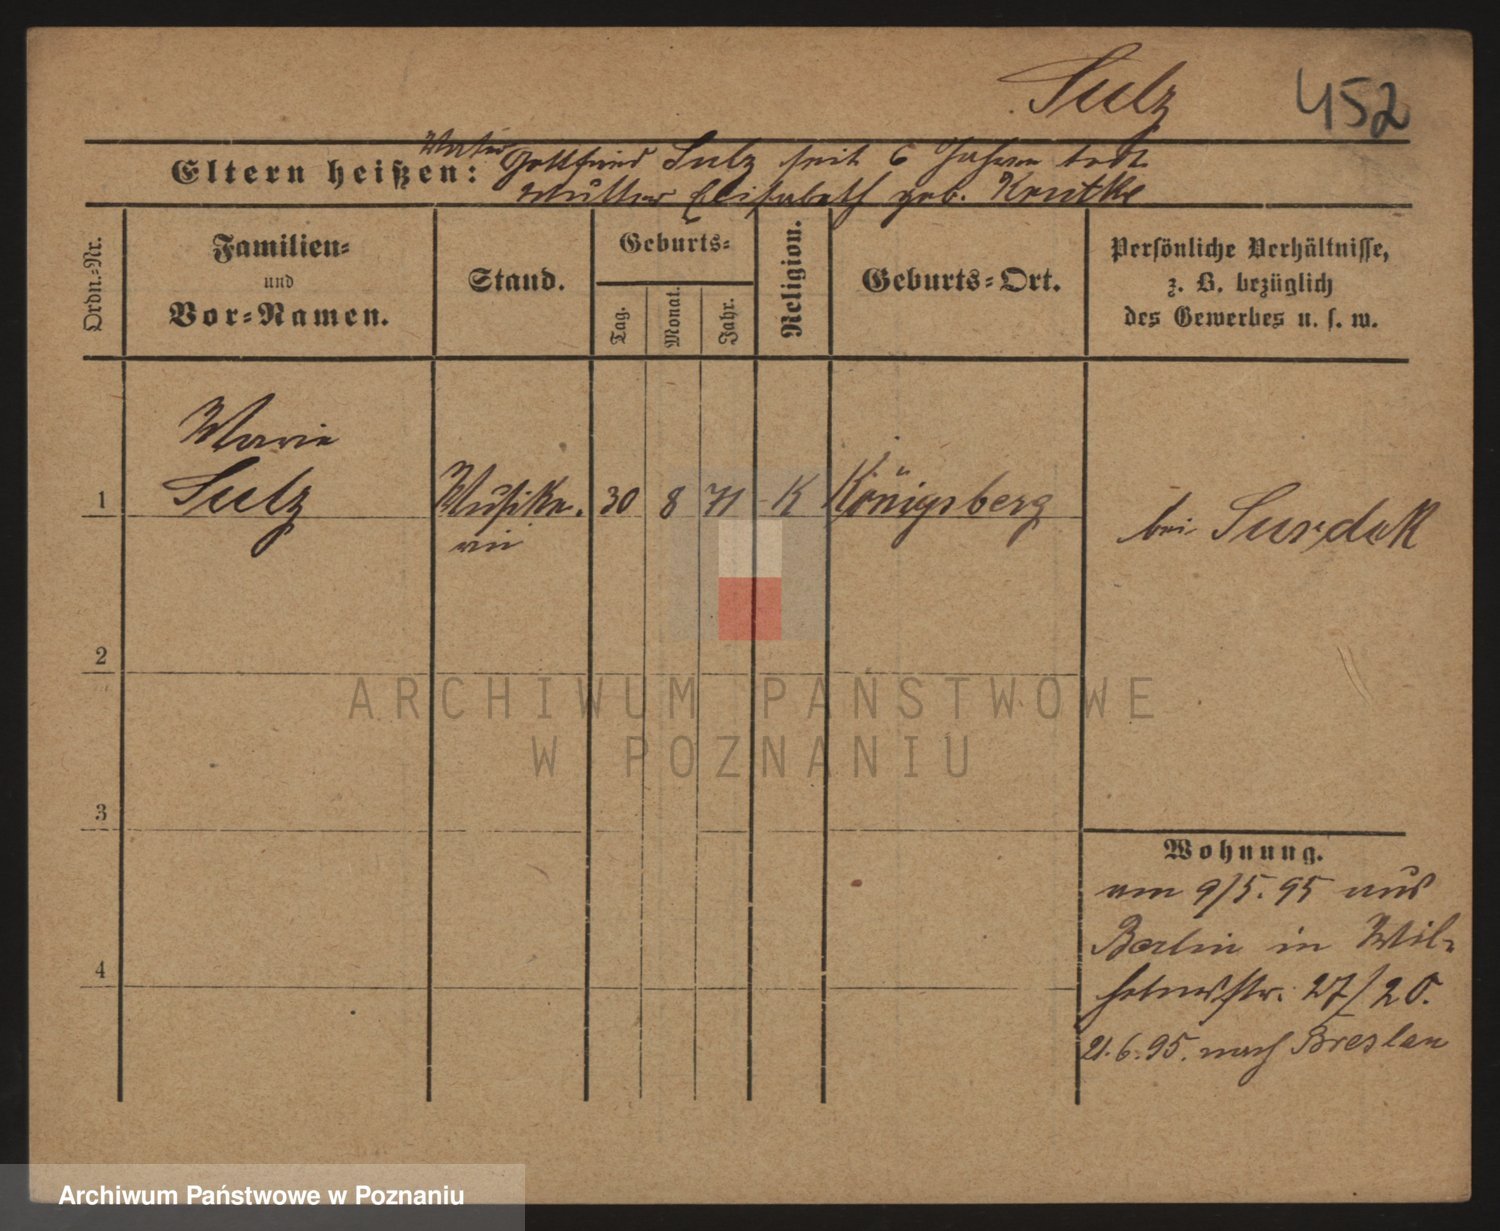 Sulz
452
Vater
Eltern heißen: Gottfried Sulz seit 6 Jahren todt
Mutter Elisabeth geb. Krutke
Ordn.-Nr.
Familien-
und
Vor-Namen.
Stand.
Geburts-
Tag.
Monat.
Jahr.
Religion.
Geburts-Ort.
Persönliche Verhältnisse,
z. B. bezüglich
des Gewerbes u. s. w.
Marie
1 Sulz Musike. 30 8 71 K Königsberg
rin
bei Surdak
2
ARCHIWUM PAŃSTWOWE
W POZNANIU
3
Wohnung.
am 9/5. 95 aus
Berlin in Wil-
4
helmstr. 27/20.
21.6.95. nach Breslau
Archiwum Państwowe w Poznaniu